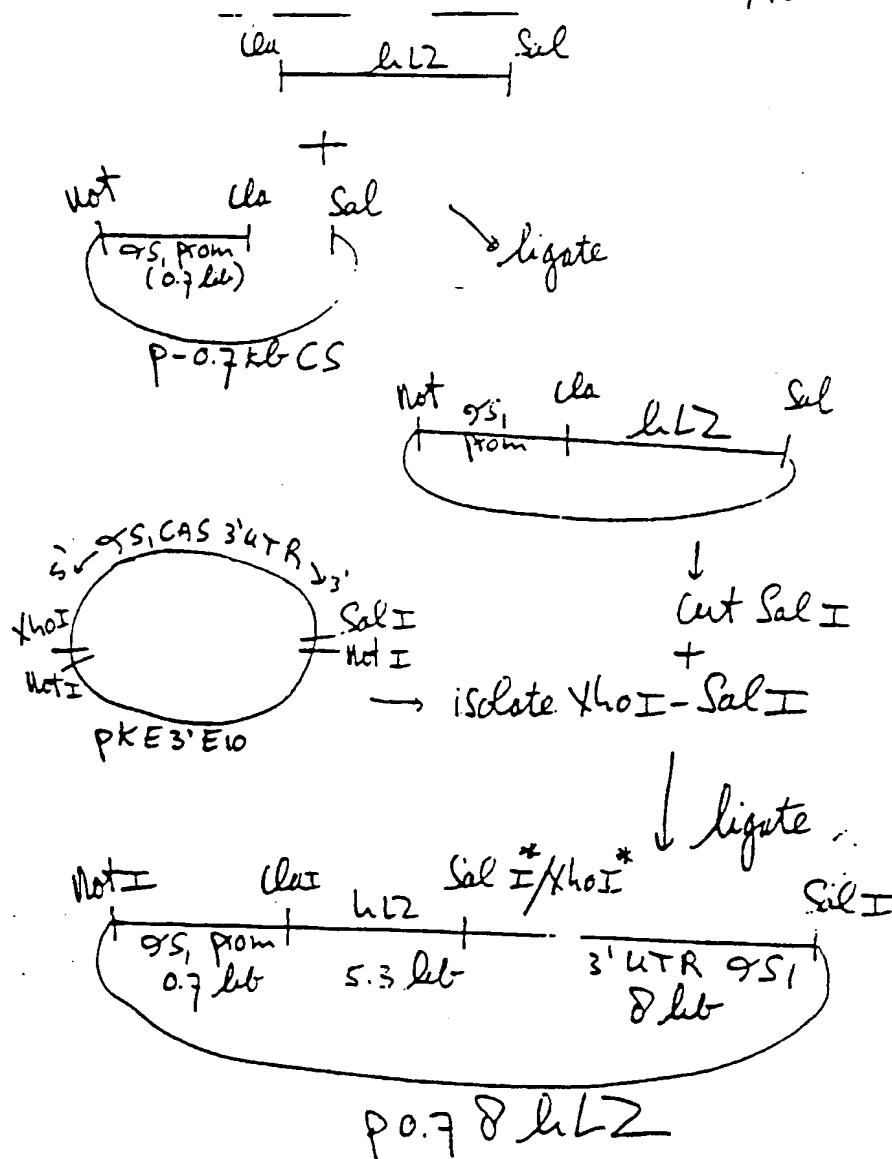 Cla hLZ Sal
+
Not Cla Sal
αS₁ prom
(0.7 kb)
ligate
p-0.7kb CS
Not αS₁ Cla hLZ Sal
prom
αS₁CAS 3'UTR
5' 3'
XhoI SalI
NotI NotI
pKE3'E10
cut Sal I
+
isolate XhoI-Sal I
ligate
NotI ClaI hLZ Sal I*/XhoI* Sal I
αS₁ prom
0.7 kb 5.3 kb 3'UTR αS₁
8 kb
p0.7 8 hLZ